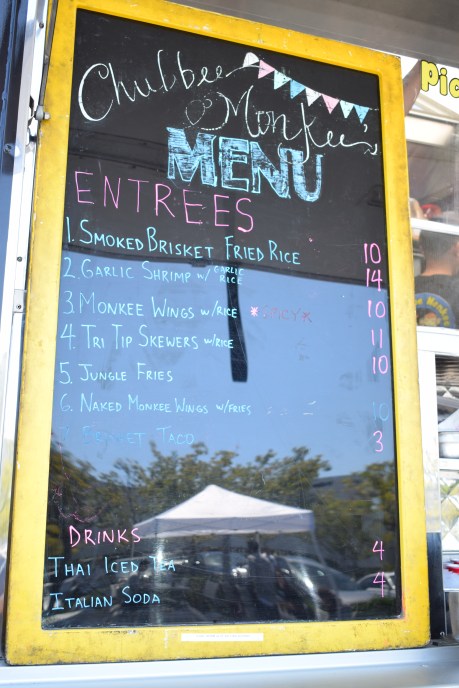 Chubbee
Monkee's
MENU
ENTREES
1. SMOKED BRISKET FRIED RICE 10
2. GARLIC SHRIMP W/ GARLIC RICE 14
3. MONKEE WINGS W/RICE *SPICY* 10
4. TRI TIP SKEWERS W/RICE 11
5. JUNGLE FRIES 10
6. NAKED MONKEE WINGS W/FRIES 10
TACO 3
DRINKS
THAI ICED TEA 4
ITALIAN SODA 4
Pic